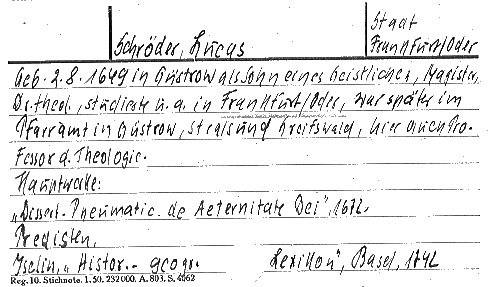 Staat
Schröder, Lucas Frankfurt/Oder
Geb. 2.8.1649 in Güstrow als Sohn eines Geistlichen, Magister,
Dr. theol., studierte u. a. in Frankfurt/Oder, war später im
Pfarramt in Güstrow, Stralsund Greifswald, hier auch Pro-
fessor d. Theologie.
Hauptwerke:
„Dissert. Pneumatic. de Aeternitate Dei", 1672.
Predigten.
Iselin, „Histor.- geogr. Lexikon", Basel, 1742
Reg. 10. Stichnote. 1. 50. 232000. A. 803. S. 4062